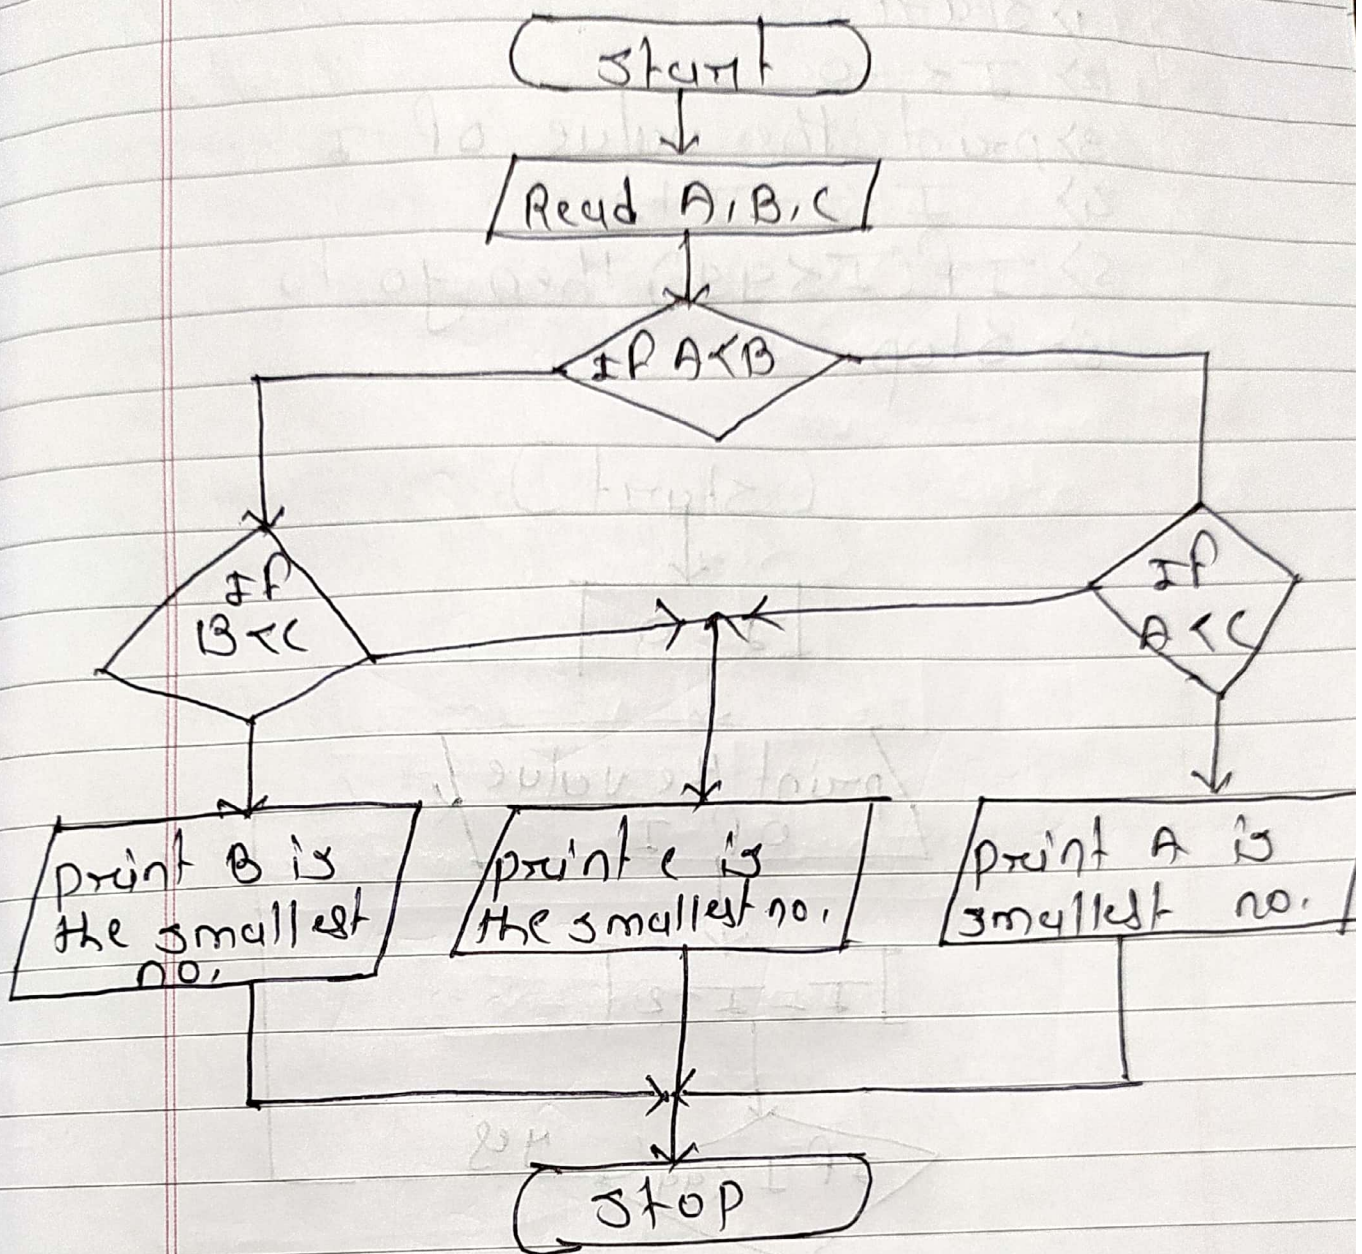 Start
Read A, B, C
If A<B
If
B<C
If
A<C
print B is
the smallest
no.
print c is
the smallest no.
print A is
smallest no.
Stop